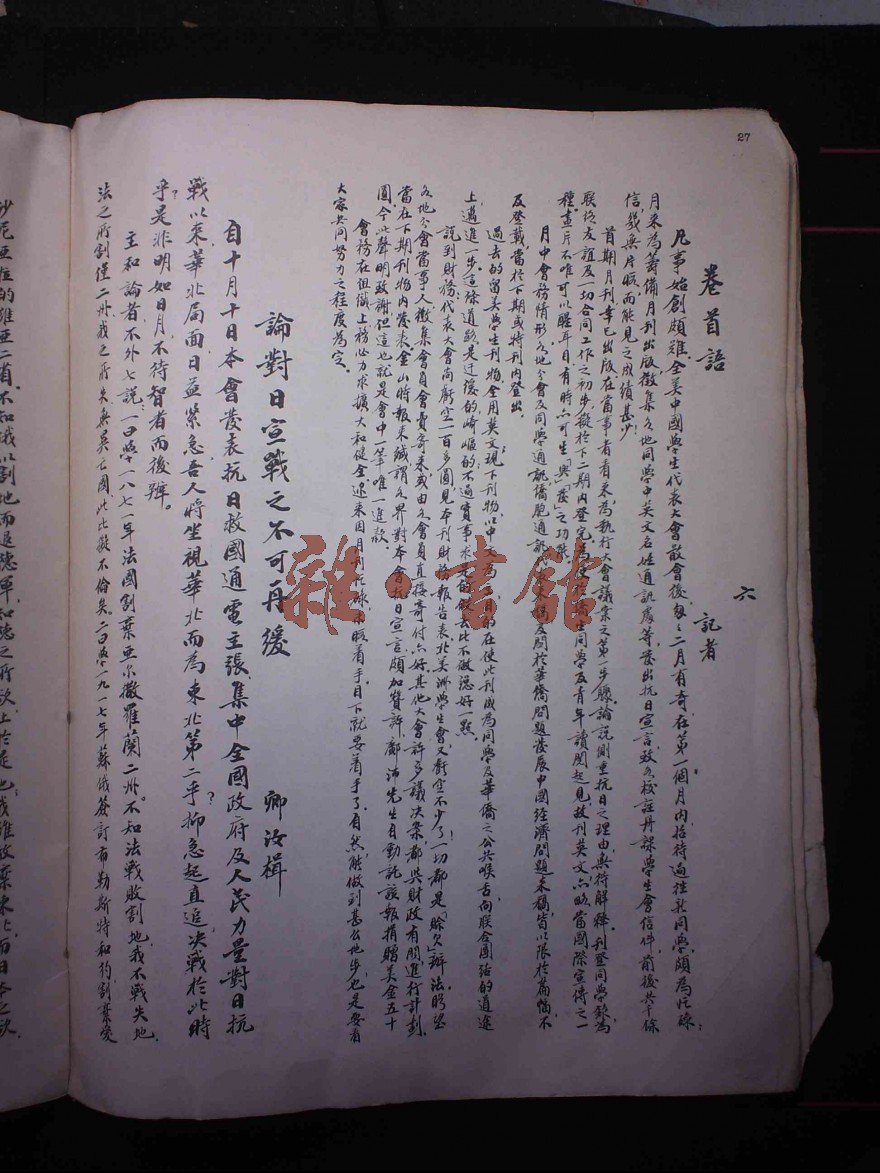 27
六
卷首語
記者
凡事始創頗難全美中國學生代表大會散會後每每二月有奇在第一個月內招待過往新同學頗為忙碌;
月來為籌備月刊出版徵集各地同學中英文名姓通訊處等發出抗日宣言致各校註冊課學生會信件前後共千餘
信幾無片暇而能見之成績甚少
首期月刊幸已出版在當事者看來為執行大會議案之第一步驟論說側重抗日之理由與待解釋刊登同學錄為
聯絡友誼及一切合同工作之初步擬於下二期內登完為便於僑生同學及青年讀閱起見故刊英文六畧當國際宣傳之一
種畫片不唯可以醒耳目有時亦可生興「奮」之功能
月中會務情形各地分會及同學通訊僑胞通訊
及關於華僑問題發展中國經濟問題來稿皆以限於篇幅不
及登載當於下期或特刊內登出
過去的留美學生刊物全用英文現下刊物以中文為
目的在使此刊成為同學及華僑之公共喉舌向聯合團結的道途
上邁進一步這條道路是迂緩的崎嶇的不過實事求是的做去比不做總好一點
說到財務代表大會尚虧空一百多圓見本刊財務報告表北美洲學生會又虧空不少了一切都是「賒欠」辦法盼望
各地分會當事人徵集會員會費寄來或由各會員直接寄付亦好其他大會許多議決案都與財政有關進行計劃
當在下期刊物內發表金山時報來緘謂各界對本會抗日宣言頗加贊許鄺
先生自動託該報捐贈美金五十
圓今此聲明致謝但這也就是會中一筆唯一進款
會務在組識上務必力求擴大和健全近來因月刊忙碌未暇着手目下就要着手了自然能做到甚么地步也是要看
大家共同努力之程度為定
論對日宣戰之不可再緩
卿汝楫
自十月十日本會發表抗日救國通電主張集中全國政府及人民力量對日抗
戰以來華北局面日益緊急吾人將坐視華北而為東北第二乎?抑急起直追決戰於此時
乎?是非明如日月不待智者而後辨。
主和論者不外七說:一曰學一八七一年法國割棄亞尔撒羅蘭二州。不知法戰敗割地我不戰失地
法之所割僅二州我之所失無異亡國此比擬不倫矣二曰學一九一七年蘇俄簽訂布勒斯特和約割棄愛
沙尼亞
的維亞二省不知俄以割地而退德軍和德之所欲止於是也我雖放棄東北而日本之欲
雜·書館